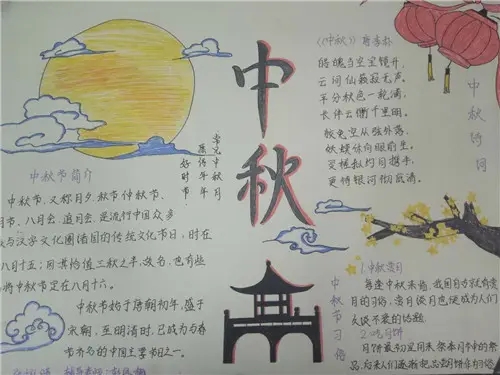 中秋
中秋节简介
中秋节，又称月夕、秋节、仲秋节、
月节、八月会、追月会、是流行中国众多
与汉字文化圈诸国的传统文化节日，时在
八月十五；因其恰值三秋之半，故名，也有些
将中秋节定在八月十六。
中秋节始于唐朝初年，盛于
宋朝，至明清时，已成为与春
节齐名的中国主要节日之一。
《中秋》 唐 李朴
皓魄当空宝镜升，
云间仙籁寂无声。
平分秋色一轮满，
长伴云衢千里明。
狡兔空从弦外落，
妖蟆休向眼前生。
灵槎拟约同携手，
更待银河彻底清。
中秋诗词
中秋节习俗
1.中秋赏月
每逢中秋来临，我国自古就有赏
月的习俗，赏月谈月也便成为人们
久谈不衰的话题
2.吃月饼
月饼最初是用来祭奉月神的祭
品，后来人们逐渐把